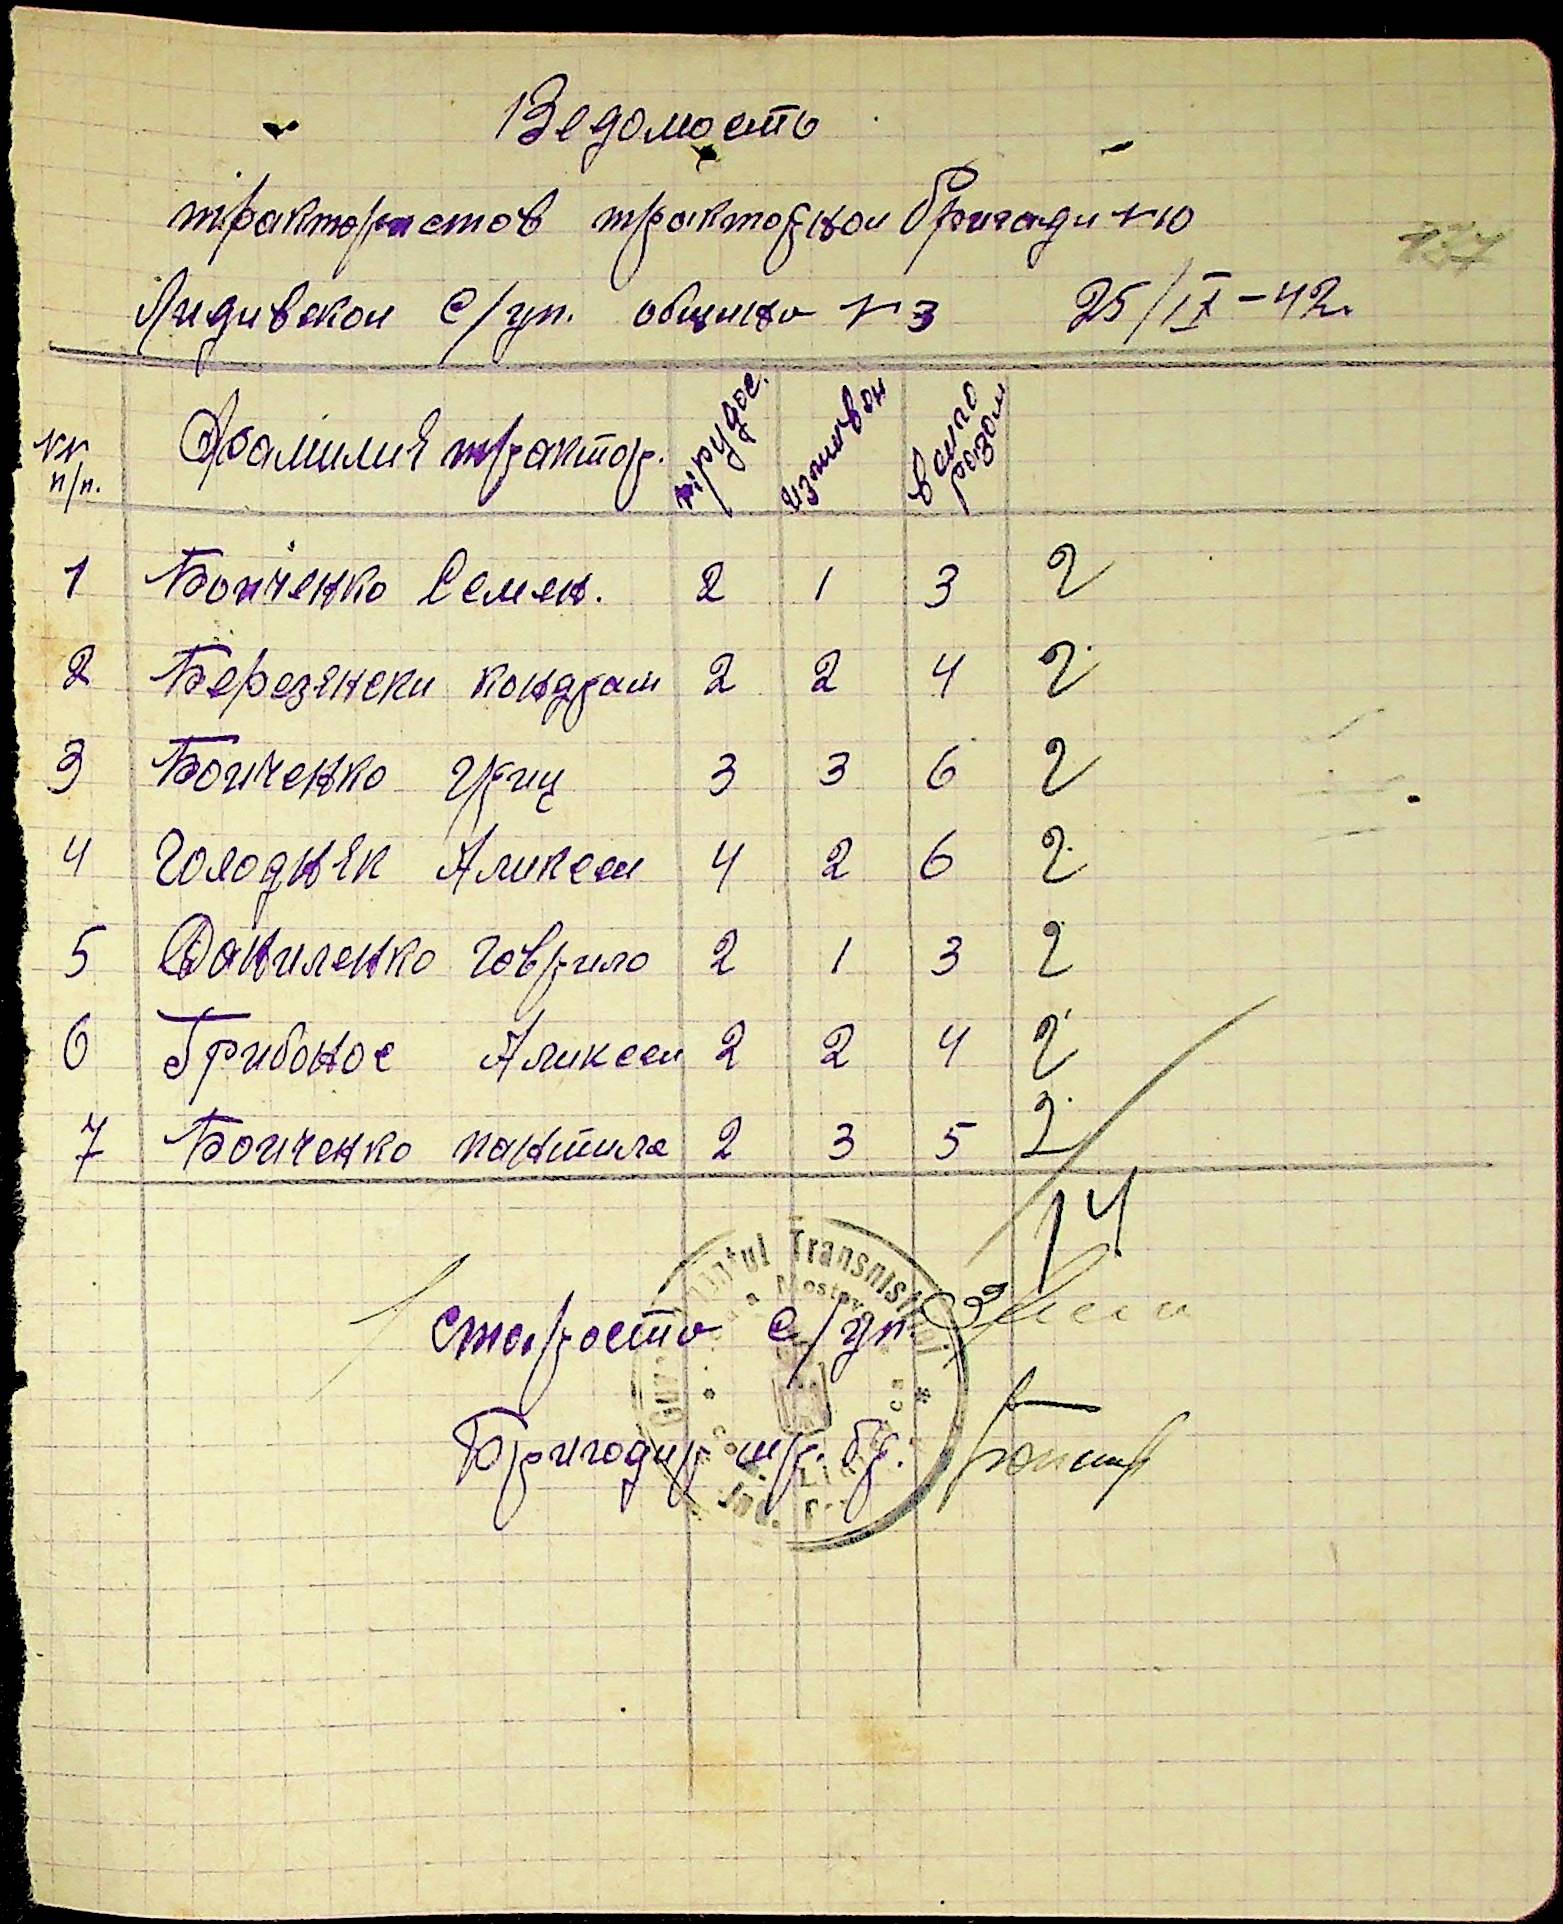 Ведомость
трактористов тракторнои бригади №10
Лидивскои с/уп. общини № 3 25/IX-42.
137
№№ п/п. Фамилия трактор. трудос. изждвен всиго розом
1 Боиченко Семен. 2 1 3 2
2 Березянски кондрат 2 2 4 2
3 Боиченко Гриц 3 3 6 2
4 Голодняк Аликсеи 4 2 6 2
5 Даниленко Говрило 2 1 3 2
6 Грибонос Аликсеи 2 2 4 2
7 Боиченко пантиле 2 3 5 2
14
Старосто с/уп.
Бригодир тр. бр.
Transnistriei
Jud.